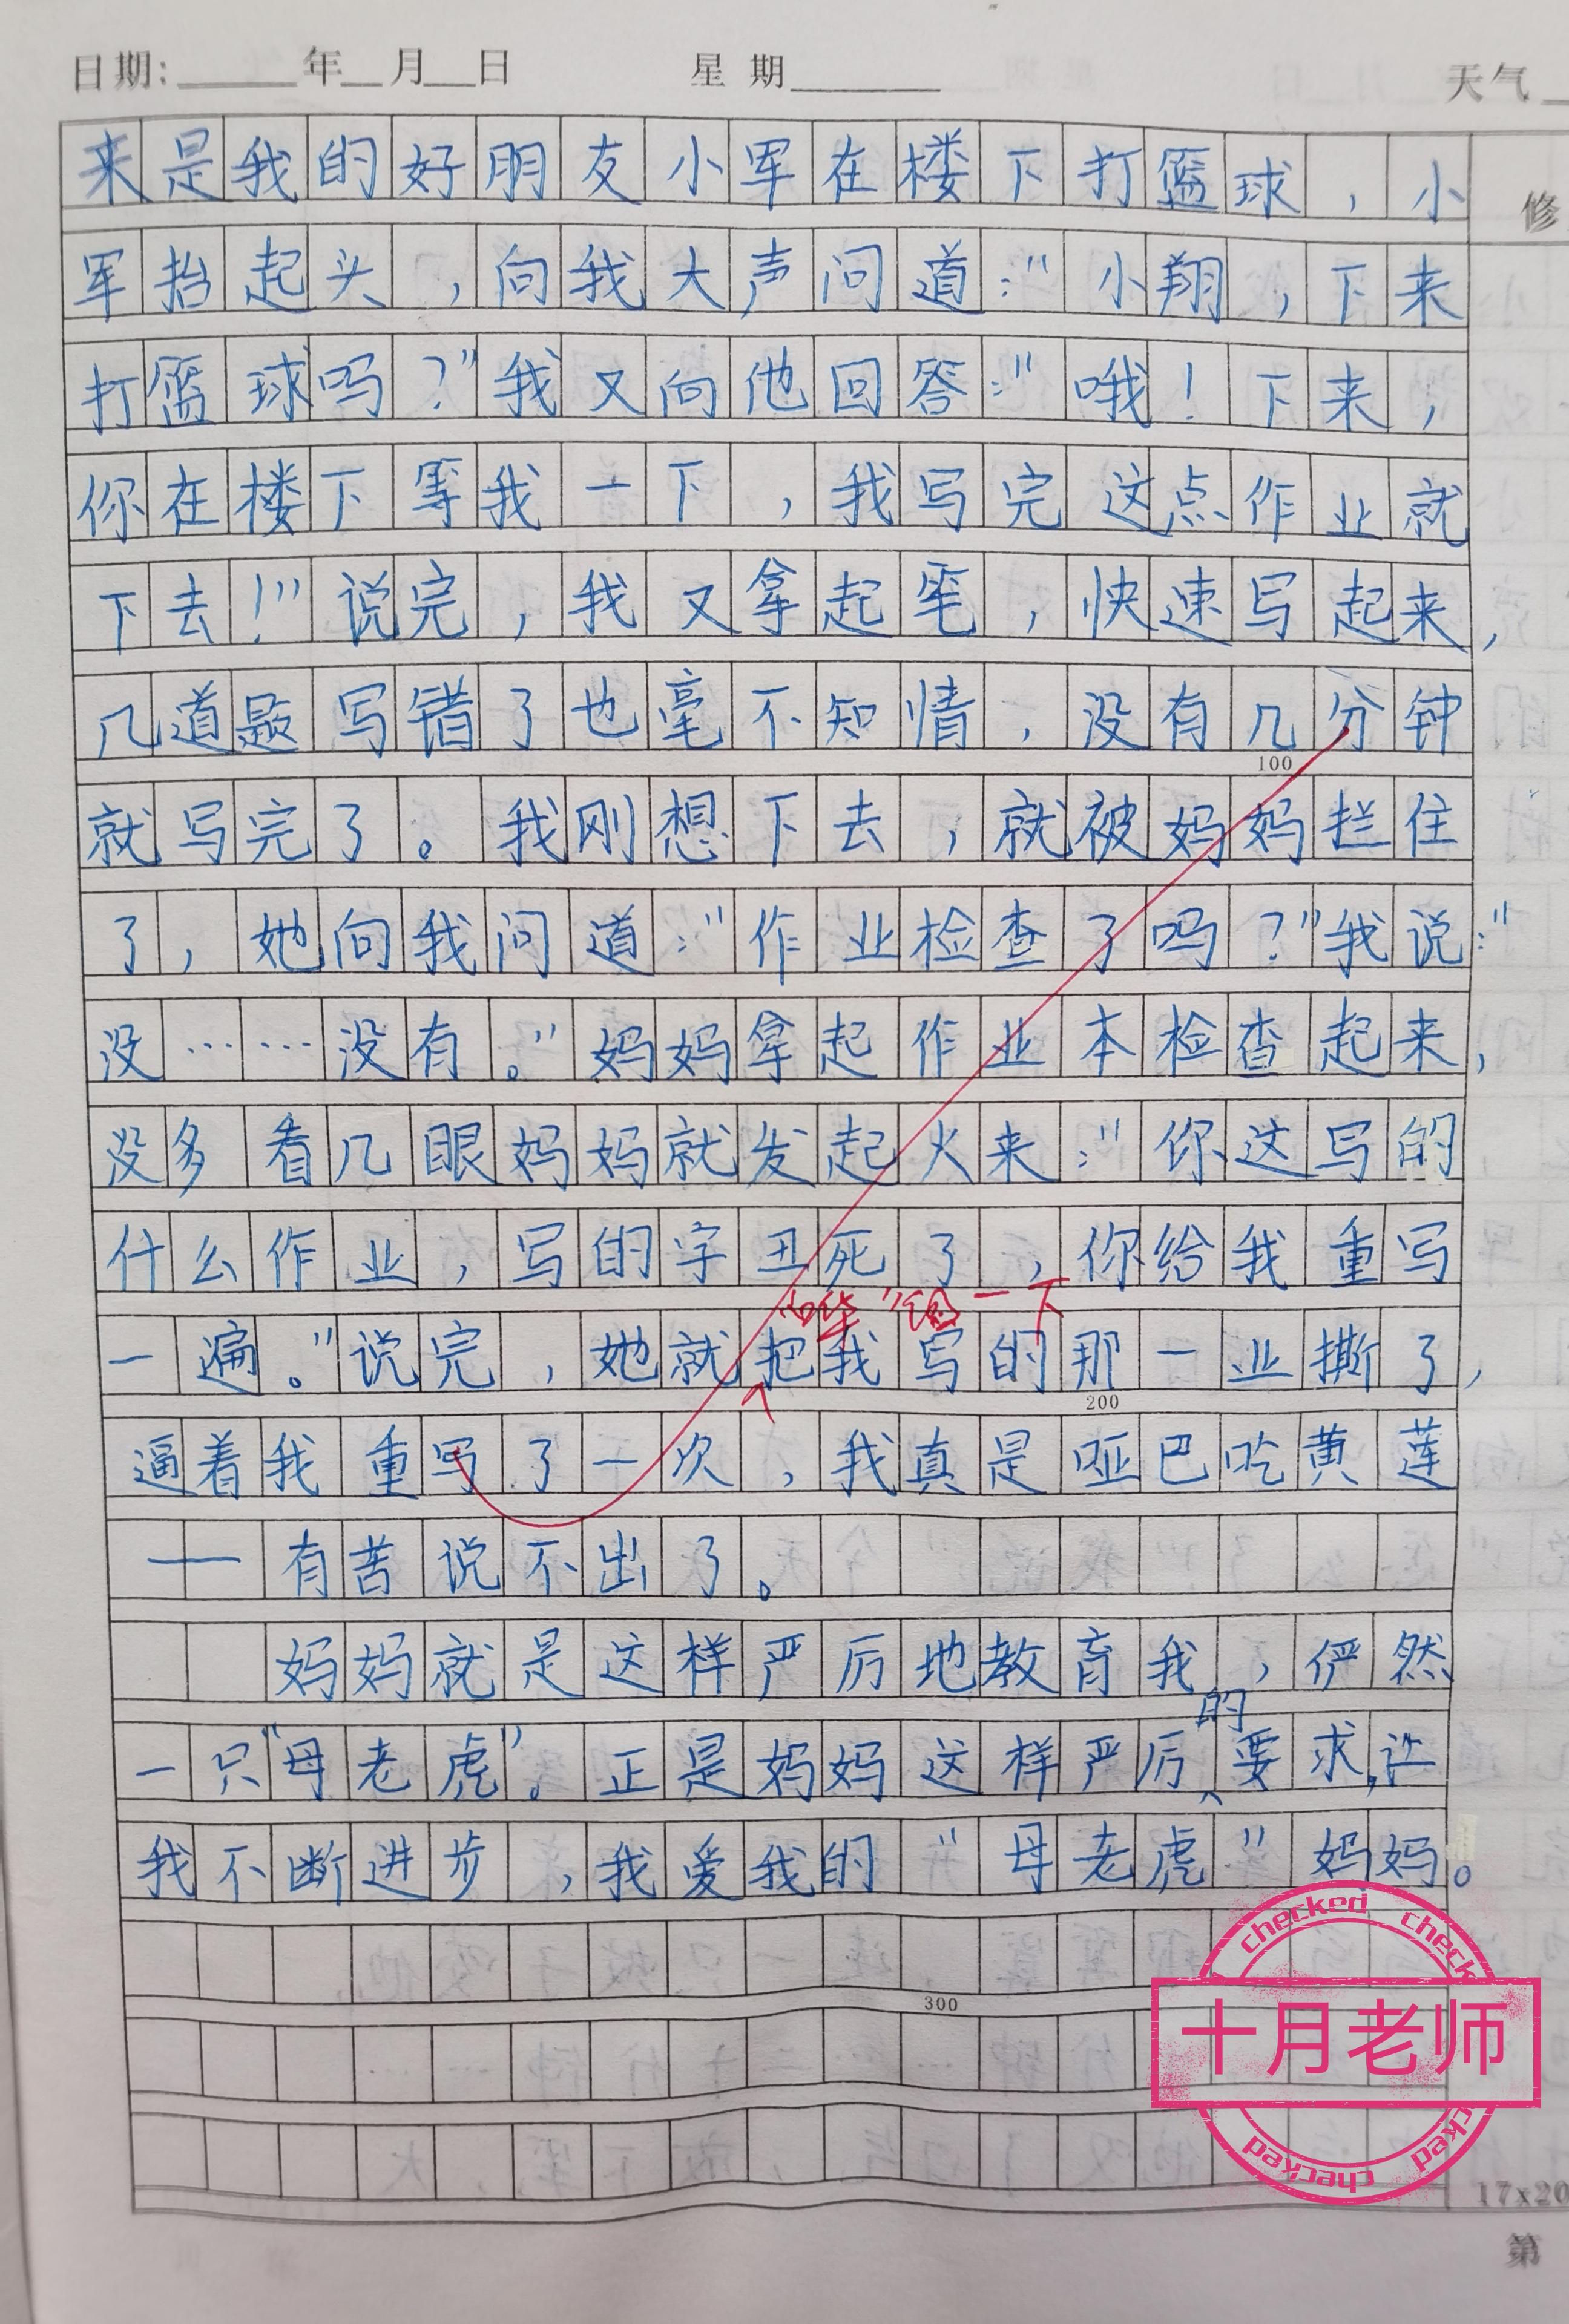 日期:______年__月__日 星 期________ 天气
来是我的好朋友小军在楼下打篮球，小
修
军抬起头，向我大声问道："小翔，下来
打篮球吗？"我又向他回答："哦！下来，
你在楼下等我一下，我写完这点作业就
下去！"说完，我又拿起笔，快速写起来，
几道题写错了也毫不知情，没有几分钟
100
就写完了。我刚想下去，就被妈妈拦住
了，她向我问道："作业检查了吗？"我说："
没……没有。"妈妈拿起作业本检查起来，
没多看几眼妈妈就发起火来："你这写的
什么作业，写的字丑死了，你给我重写
一遍。"说完，她就把我写的那一业撕了，
200
逼着我重写了一次，我真是哑巴吃黄莲
——有苦说不出了。
妈妈就是这样严厉地教育我，俨然
一只"母老虎"。正是妈妈这样严厉的要求，让
我不断进步，我爱我的"母老虎"妈妈。
checked checked
十月老师
checked checked
300
17x20
第